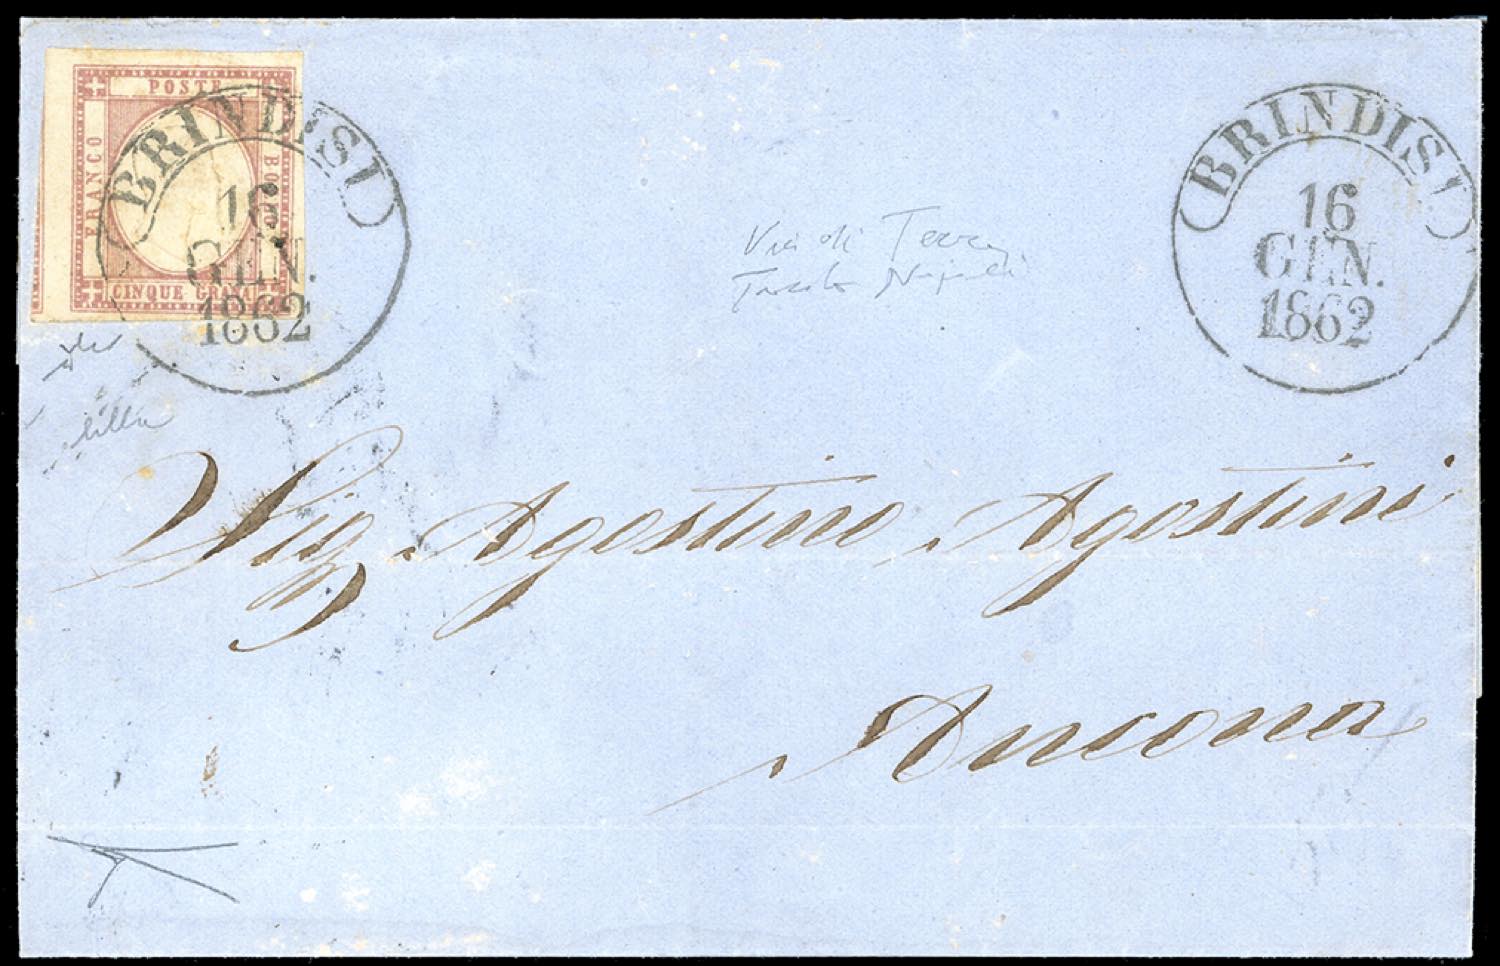 POSTE
FRANCO
BOLLO
CINQUE GRANA
BRINDISI
16
GEN.
1862
BRINDISI
16
GEN.
1862
Via di Terra
Napoli
lilla
Sig. Agostino Agostini
Ancona